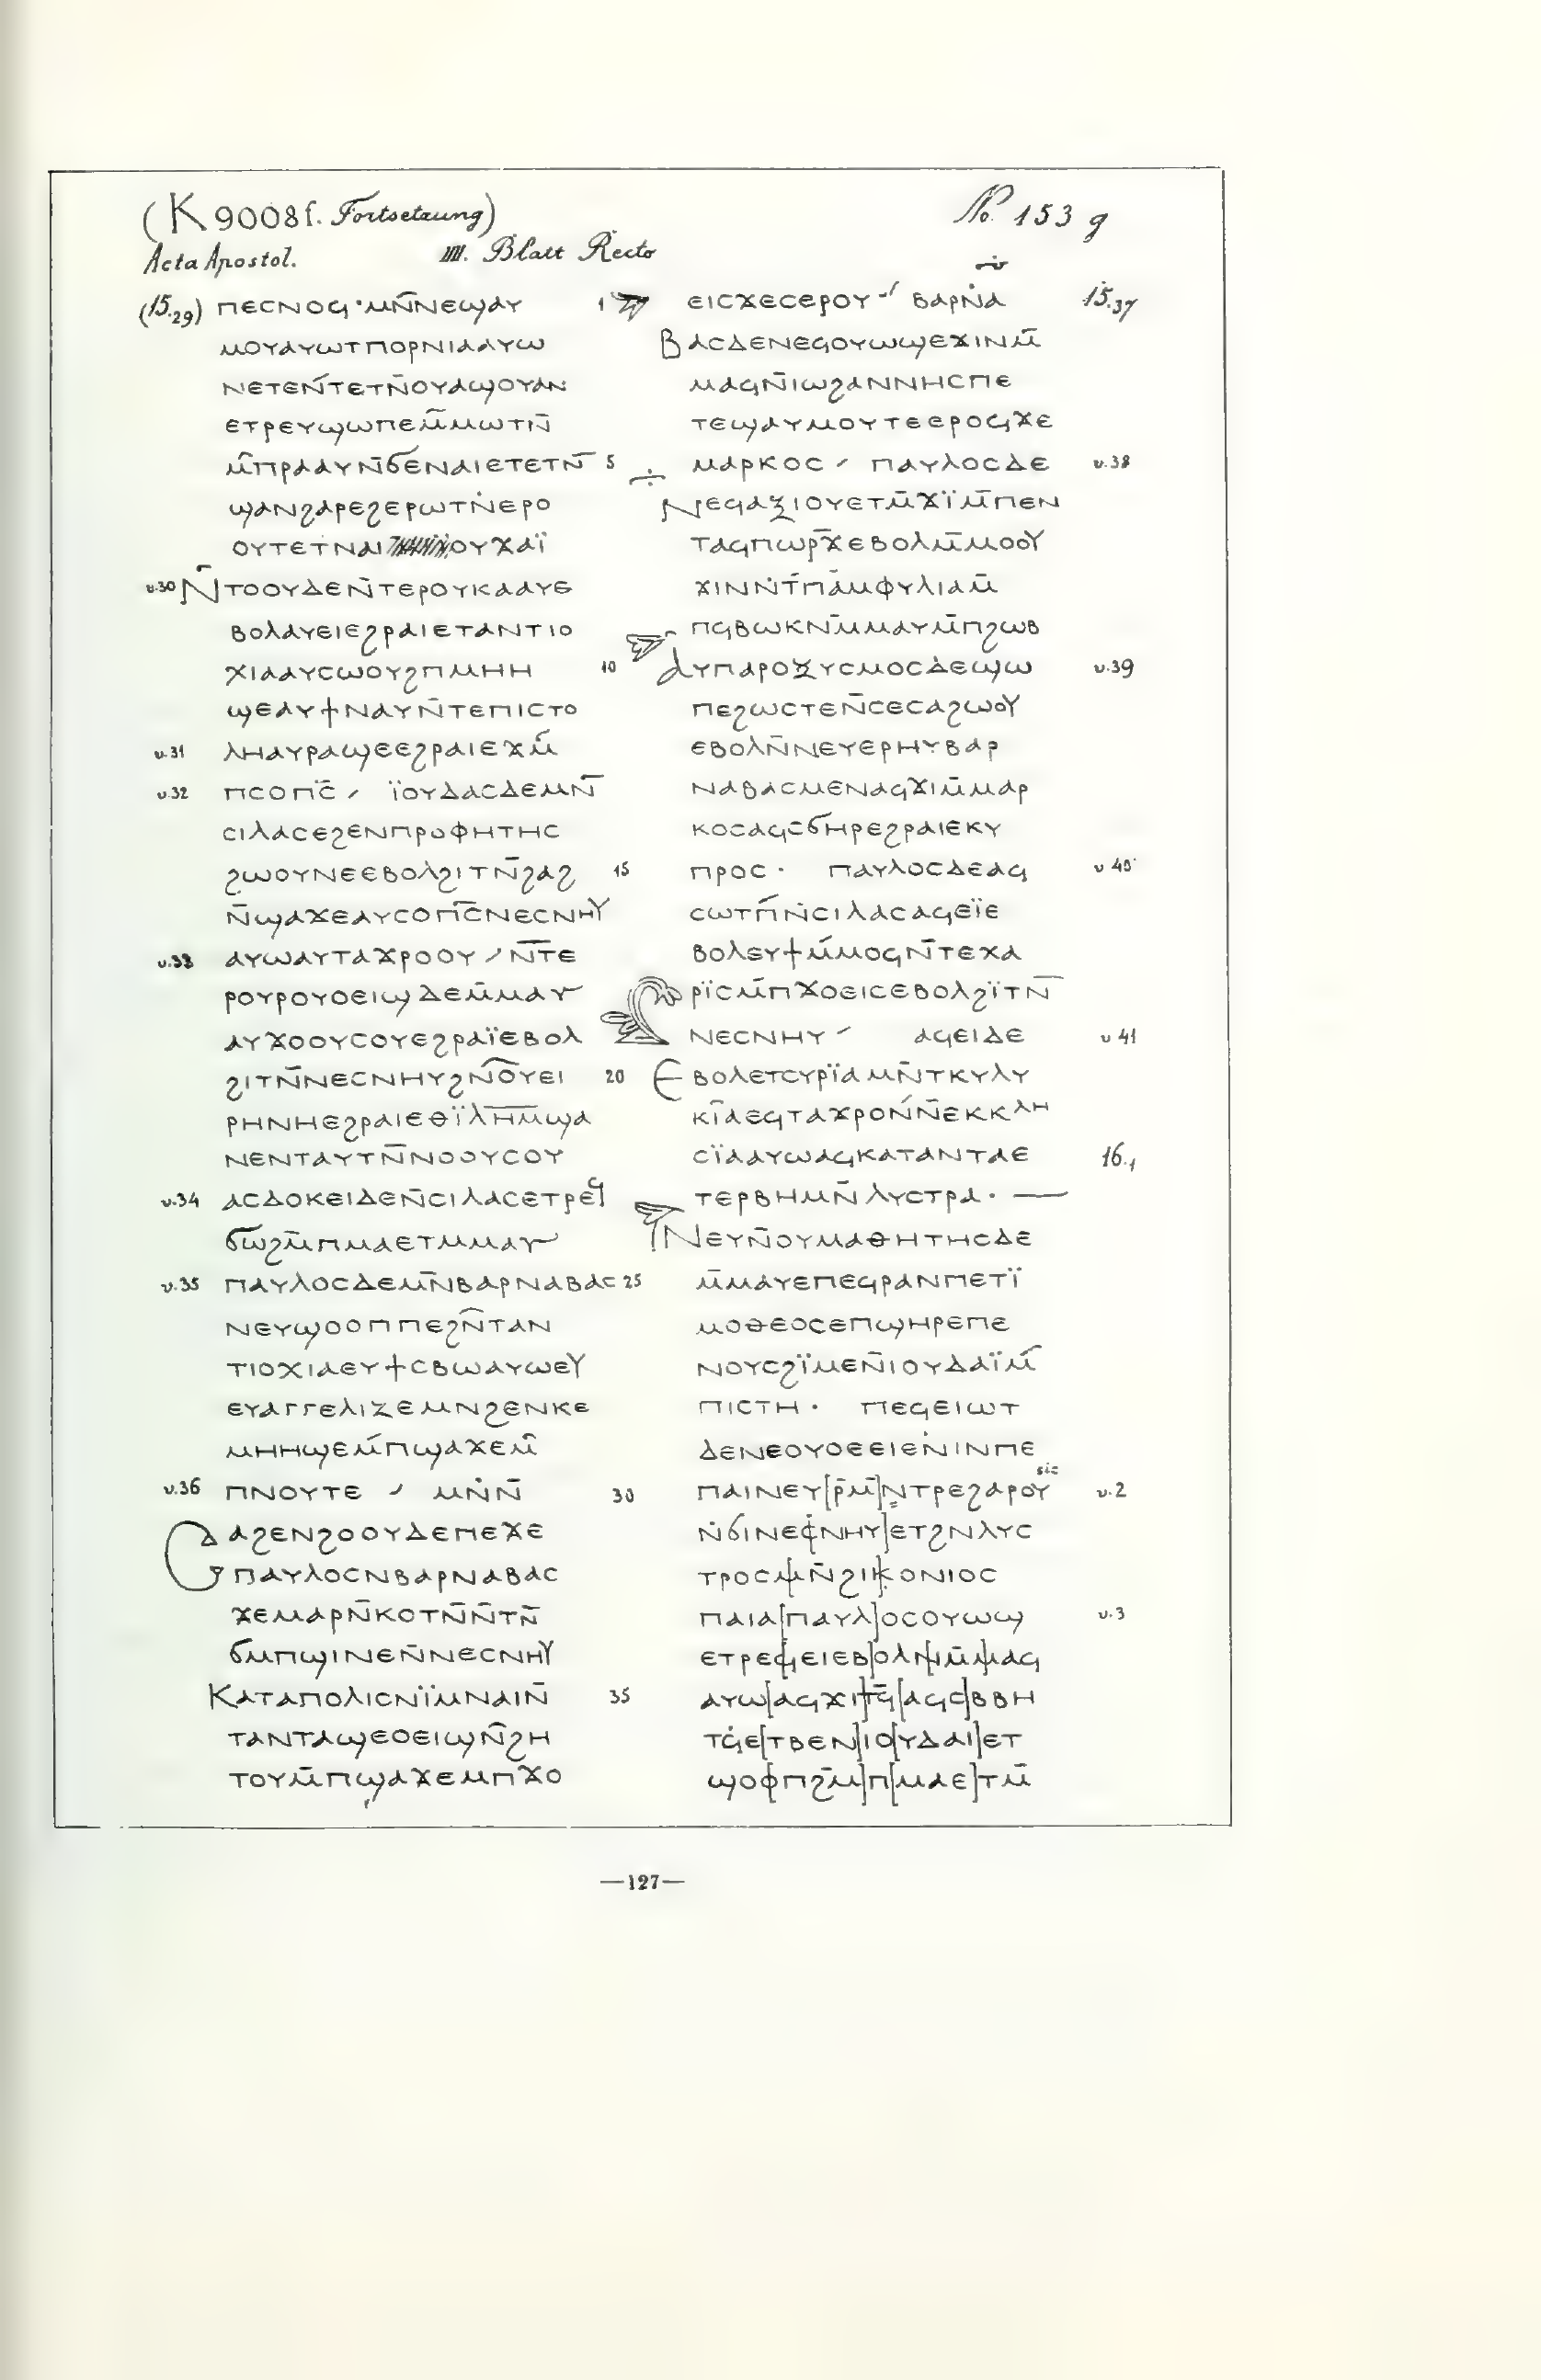 (K 9008f. Fortsetzung)
No. 153 g
Acta Apostol.
III. Blatt Recto
(15.29) ⲡⲉⲥⲛⲟϥ·ⲙⲛ̄ⲛⲉϣⲁⲩ
ⲙⲟⲩⲁⲩⲱⲧⲡⲟⲣⲛⲓⲁⲁⲩⲱ
ⲛⲉⲧⲉⲛ̄ⲧⲉⲧⲛ̄ⲟⲩⲁϣⲟⲩⲁⲛ
ⲉⲧⲣⲉⲩϣⲱⲡⲉⲙ̄ⲙⲱⲧⲛ̄
ⲙ̄ⲡⲣⲁⲁⲩⲛ̄ϭⲉⲛⲁⲓⲉⲧⲉⲧⲛ̄ 5
ϣⲁⲛϩⲁⲣⲉϩⲉⲣⲱⲧⲛ̇ⲉⲣⲟ
ⲟⲩⲧⲉⲧⲛⲁⲓ ⲟⲩϫⲁⲓ̈
v.30 ⲛ̄ⲧⲟⲟⲩⲇⲉⲛ̄ⲧⲉⲣⲟⲩⲕⲁⲁⲩⲉ
ⲃⲟⲗⲁⲩⲉⲓⲉϩⲣⲁⲓⲉⲧⲁⲛⲧⲓⲟ
ⲭⲓⲁⲁⲩⲥⲱⲟⲩϩⲡⲙⲏⲏ 10
ϣⲉⲁⲩϯⲛⲁⲩⲛ̄ⲧⲉⲡⲓⲥⲧⲟ
v.31 ⲗⲏⲁⲩⲣⲁϣⲉⲉϩⲣⲁⲓⲉϫⲙ̄
v.32 ⲡⲥⲟⲡⲥ̄ ⸍ ⲓ̈ⲟⲩⲇⲁⲥⲇⲉⲙⲛ̄
ⲥⲓⲗⲁⲥⲉϩⲉⲛⲡⲣⲟⲫⲏⲧⲏⲥ
ϩⲱⲟⲩⲛⲉⲉⲃⲟⲗϩⲓⲧⲛ̄ϩⲁϩ 15
ⲛ̄ϣⲁϫⲉⲁⲩⲥⲟⲡⲥ̄ⲛⲉⲥⲛⲏⲩ
v.33 ⲁⲩⲱⲁⲩⲧⲁϫⲣⲟⲟⲩ ⸍ ⲛ̄ⲧⲉ
ⲣⲟⲩⲣⲟⲩⲟⲉⲓϣⲇⲉⲙ̄ⲙⲁⲩ
ⲁⲩϫⲟⲟⲩⲥⲟⲩⲉϩⲣⲁⲓ̈ⲉⲃⲟⲗ
ϩⲓⲧⲛ̄ⲛⲉⲥⲛⲏⲩϩⲛ̄ⲟⲩⲉⲓ 20
ⲣⲏⲛⲏⲉϩⲣⲁⲓⲉⲑⲓ̈ⲗⲏ̄ⲙ̄ϣⲁ
ⲛⲉⲛⲧⲁⲩⲧⲛ̄ⲛⲟⲟⲩⲥⲟⲩ
v.34 ⲁⲥⲇⲟⲕⲉⲓⲇⲉⲛ̄ⲥⲓⲗⲁⲥⲉⲧⲣⲉϥ
ϭⲱϩⲙ̄ⲡⲙⲁⲉⲧⲙⲙⲁⲩ
v.35 ⲡⲁⲩⲗⲟⲥⲇⲉⲙⲛ̄ⲃⲁⲣⲛⲁⲃⲁⲥ 25
ⲛⲉⲩϣⲟⲟⲡⲡⲉϩⲛ̄ⲧⲁⲛ
ⲧⲓⲟⲭⲓⲁⲉⲩϯⲥⲃⲱⲁⲩⲱⲉⲩ
ⲉⲩⲁⲅⲅⲉⲗⲓⲍⲉⲙⲛϩⲉⲛⲕⲉ
ⲙⲏⲏϣⲉⲙ̄ⲡϣⲁϫⲉⲙ̄
v.36 ⲡⲛⲟⲩⲧⲉ ⸍ ⲙⲛ̇ⲛ̄ 30
ⲥⲁϩⲉⲛϩⲟⲟⲩⲇⲉⲡⲉϫⲉ
ⲡⲁⲩⲗⲟⲥⲛⲃⲁⲣⲛⲁⲃⲁⲥ
ϫⲉⲙⲁⲣⲛ̄ⲕⲟⲧⲛ̄ⲛ̄ⲧⲛ̄
ϭⲙⲡϣⲓⲛⲉⲛ̄ⲛⲉⲥⲛⲏⲩ
ⲕⲁⲧⲁⲡⲟⲗⲓⲥⲛⲓ̈ⲙⲛⲁⲓⲛ̄ 35
ⲧⲁⲛⲧⲁϣⲉⲟⲉⲓϣⲛ̄ϩⲏ
ⲧⲟⲩⲙ̄ⲡϣⲁϫⲉⲙⲡϫⲟ
1 ⲉⲓⲥϫⲉⲥⲉⲣⲟⲩ ⸍ ⲃⲁⲣⲛ̇ⲁ 15.37
ⲃⲁⲥⲇⲉⲛⲉϥⲟⲩⲱϣⲉϫⲓⲛⲙ̄
ⲙⲁϥⲛ̄ⲓⲱϩⲁⲛⲛⲏⲥⲡⲉ
ⲧⲉϣⲁⲩⲙⲟⲩⲧⲉⲉⲣⲟϥϫⲉ
ⲙⲁⲣⲕⲟⲥ ⸍ ⲡⲁⲩⲗⲟⲥⲇⲉ v.38
ⲛⲉϥⲁⲝⲓⲟⲩⲉⲧⲙ̄ϫⲓ̈ⲙ̄ⲡⲉⲛ
ⲧⲁϥⲡⲱⲣ̄ϫⲉⲃⲟⲗⲙ̄ⲙⲟⲟⲩ
ϫⲓⲛⲛ̇ⲧ̄ⲡⲁⲙⲫⲩⲗⲓⲁⲙ̄
ⲡϥⲃⲱⲕⲛⲙ̄ⲙⲁⲩⲙ̄ⲡϩⲱⲃ
ⲁⲩⲡⲁⲣⲟⲝⲩⲥⲙⲟⲥⲇⲉϣⲱ v.39
ⲡⲉϩⲱⲥⲧⲉⲛ̄ⲥⲉⲥⲁϩⲱⲟⲩ
ⲉⲃⲟⲗⲛ̄ⲛⲉⲩⲉⲣⲏⲩⲃⲁⲣ
ⲛⲁⲃⲁⲥⲙⲉⲛⲁϥϫⲓⲙ̄ⲙⲁⲣ
ⲕⲟⲥⲁϥⲥ̄ϭⲏⲣⲉϩⲣⲁⲓⲉⲕⲩ
ⲡⲣⲟⲥ· ⲡⲁⲩⲗⲟⲥⲇⲉⲁϥ v 40
ⲥⲱⲧⲡ̄ⲛ̇ⲥⲓⲗⲁⲥⲁϥⲉⲓ̈ⲉ
ⲃⲟⲗⲉⲩϯⲙ̄ⲙⲟϥⲛ̄ⲧⲉⲭⲁ
ⲣⲓ̈ⲥⲙ̄ⲡϫⲟⲉⲓⲥⲉⲃⲟⲗϩⲓ̈ⲧⲛ̄
ⲛⲉⲥⲛⲏⲩ ⸍ ⲁϥⲉⲓⲇⲉ v 41
ⲉⲃⲟⲗⲉⲧⲥⲩⲣⲓ̈ⲁⲙⲛ̄ⲧⲕⲩⲗⲩ
ⲕⲓ̈ⲁⲉϥⲧⲁϫⲣⲟⲛ̄ⲛ̄ⲉⲕⲕⲗⲏ
ⲥⲓ̈ⲁⲁⲩⲱⲁϥⲕⲁⲧⲁⲛⲧⲁⲉ 16.1
ⲧⲉⲣⲃⲏⲙⲛ̄ⲗⲩⲥⲧⲣⲁ· —
ⲛⲉⲩⲛ̄ⲟⲩⲙⲁⲑⲏⲧⲏⲥⲇⲉ
ⲙ̄ⲙⲁⲩⲉⲡⲉϥⲣⲁⲛⲡⲉⲧⲓ̈
ⲙⲟⲑⲉⲟⲥⲉⲡϣⲏⲣⲉⲡⲉ
ⲛⲟⲩⲥϩⲓ̈ⲙⲉⲛ̄ⲓⲟⲩⲇⲁⲓ̈ⲙ̄
ⲡⲓⲥⲧⲏ· ⲡⲉϥⲉⲓⲱⲧ
ⲇⲉⲛⲉⲟⲩⲟⲉⲉⲓⲉⲛ̇ⲓⲛⲡⲉ
ⲡⲁⲓⲛⲉⲩ[ⲣ̄ⲙ̄]ⲛ̣ⲧⲣⲉϩⲁⲣⲟⲩ sic v.2
ⲛ̇ϭⲓⲛⲉⲥ̇ⲛⲏⲩ]ⲉⲧϩⲛⲗⲩⲥ
ⲧⲣⲟⲥⲙⲛ̄ϩⲓⲕⲟⲛⲓⲟⲥ
ⲡⲁⲓⲁ[ⲡⲁⲩⲗ]ⲟⲥⲟⲩⲱϣ v.3
ⲉⲧⲣⲉϥⲉⲓⲉⲃ]ⲟⲗⲛⲙ̄ⲙⲁϥ
ⲁⲩⲱ[ⲁϥϫⲓⲧϥ̄[ⲁϥⲥ]ⲃⲃⲏ
ⲧϥ̇ⲉ[ⲧⲃⲉⲛ]ⲓⲟ[ⲩⲇⲁⲓ]ⲉⲧ
ϣⲟⲟⲡϩ̄ⲙ]ⲡ[ⲙⲁⲉ]ⲧⲙ̄
—127—